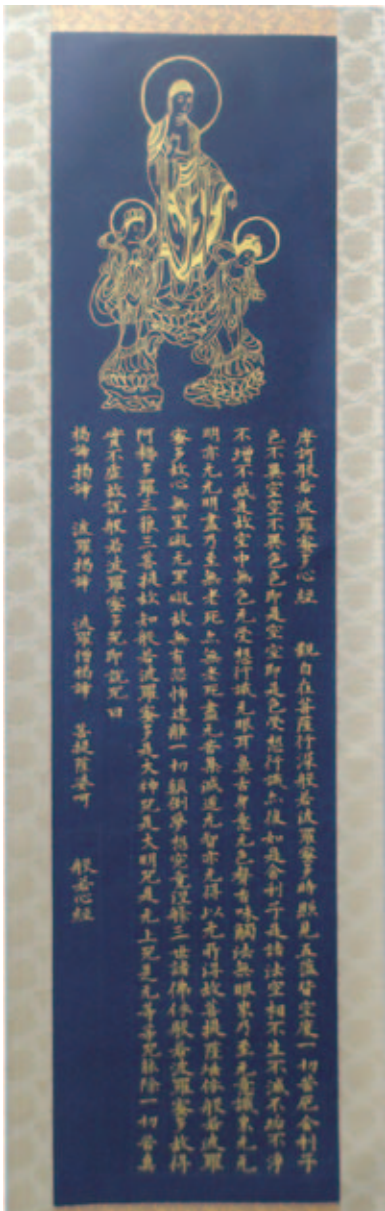 摩訶般若波羅蜜多心経 観自在菩薩行深般若波羅蜜多時照見五蘊皆空度一切苦厄舍利子
色不異空空不異色色即是空空即是色受想行識亦復如是舍利子是諸法空相不生不滅不垢不浄
不増不減是故空中無色无受想行識无眼耳鼻舌身意无色聲香味觸法無眼界乃至无意識界无无
明亦无无明盡乃至無老死亦無老死盡无苦集滅道无智亦无得以无所得故菩提薩埵依般若波羅
蜜多故心無罣礙无罣礙故無有恐怖遠離一切顛倒夢想究竟涅槃三世諸佛依般若波羅蜜多故得
阿耨多羅三藐三菩提故知般若波羅蜜多是大神咒是大明咒是无上咒是无等等咒能除一切苦真
實不虚故説般若波羅蜜多咒即説咒曰
揭諦揭諦 波羅揭諦 波羅僧揭諦 菩提薩婆呵 般若心経